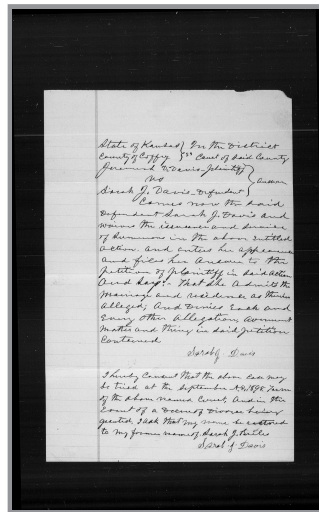 State of Kansas } In the District
County of Coffey } ss Court of said County
Jeremiah D. Davis Plaintiff
vs } Answer
Sarah J. Davis Defendant
Comes now the said
Defendant Sarah J. Davis and
waives the issuance and service
of Summons in the above entitled
action and enters her appearance
and files her Answer to the
Petition of Plaintiff in said action
and says: That she admits the
Marriage and residence as therein
Alleged; And denies Each and
Every other Allegation, averment
matter and thing in said petition
Contained
Sarah J Davis
I hereby Consent that the above case may
be tried at the September A.D. 1898 Term
of the above named Court, and in the
Event of a Decree of Divorce being
granted, I ask that my name be restored
to my former name of Sarah J.
Sarah J Davis